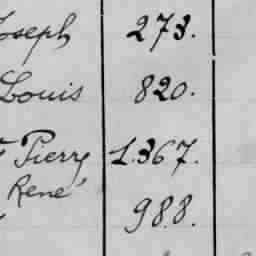 Joseph 273.
Louis 820.
Pierre 1.367.
René 988.